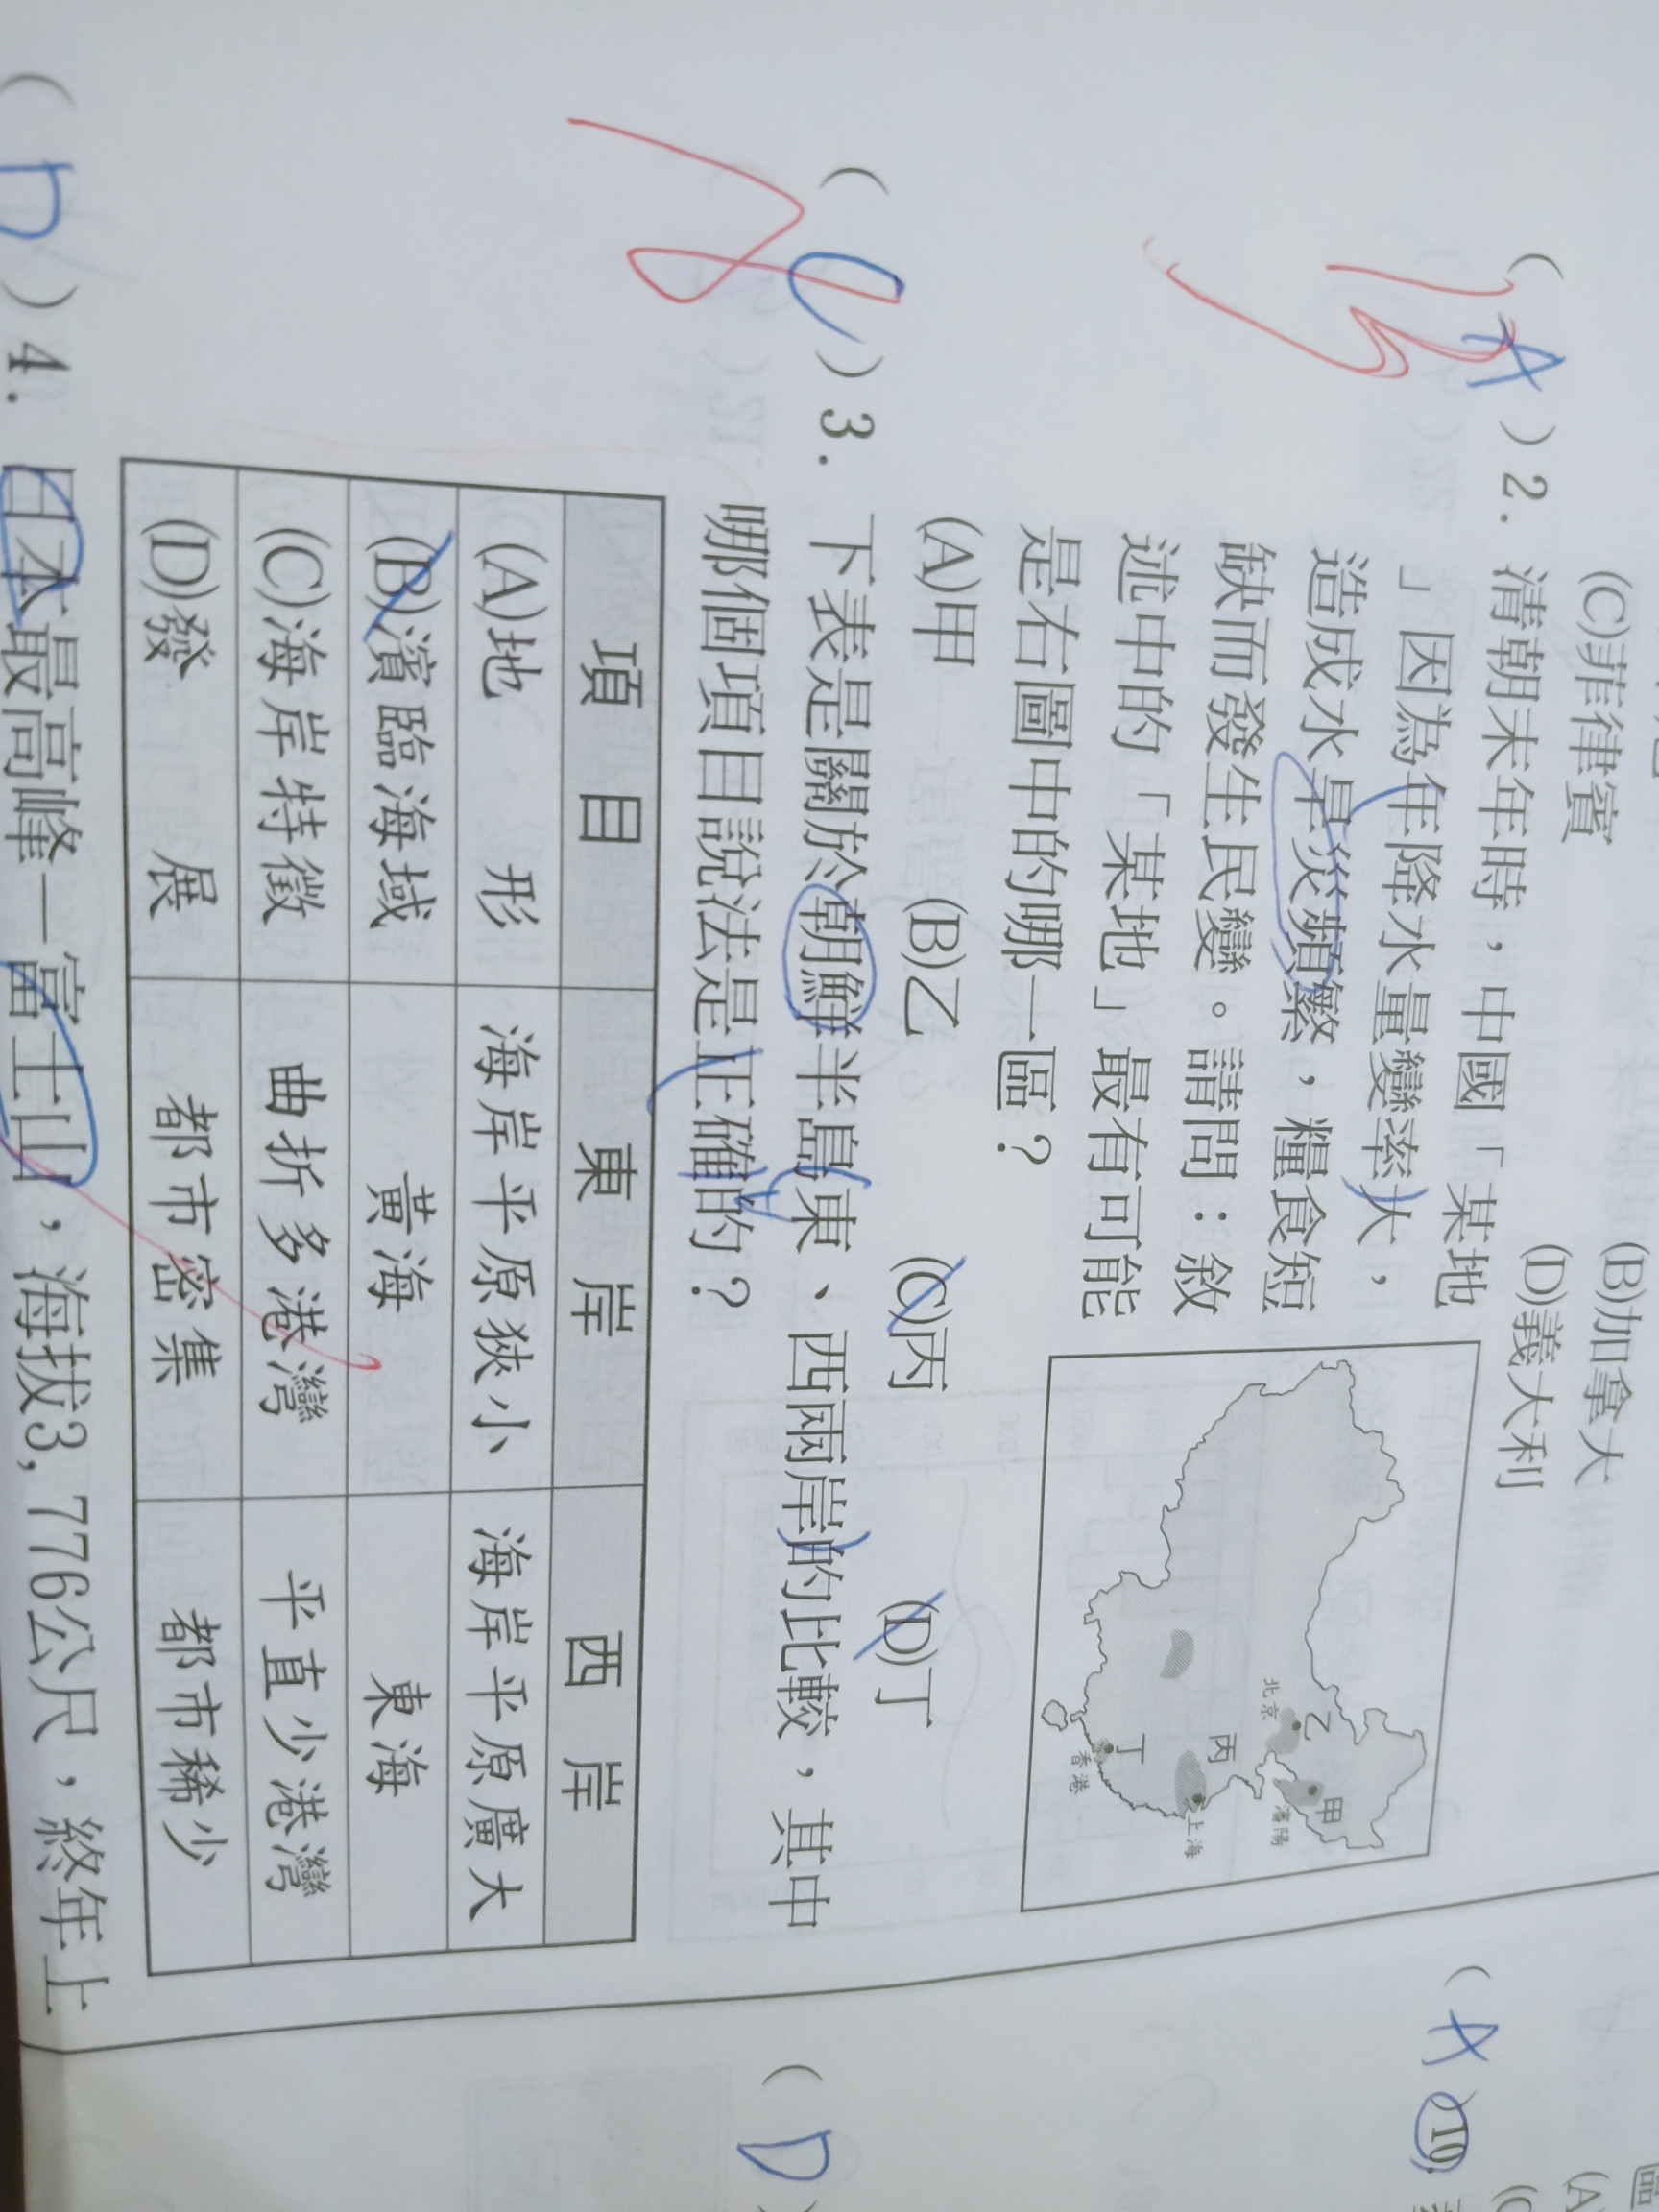 (C)菲律賓
(B)加拿大
(D)義大利
( A ) 2. 清朝末年時，中國「某地
」因為年降水量變率大，
造成水旱災頻繁，糧食短
缺而發生民變。請問：敘
述中的「某地」最有可能
是右圖中的哪一區？
甲
瀋陽
乙
北京
丙
上海
丁
香港
(A)甲 (B)乙 (C)丙 (D)丁
( C ) 3. 下表是關於朝鮮半島東、西兩岸的比較，其中
哪個項目說法是正確的？
項目 東岸 西岸
(A)地形 海岸平原狹小 海岸平原廣大
(B)濱臨海域 黃海 東海
(C)海岸特徵 曲折多港灣 平直少港灣
(D)發展 都市密集 都市稀少
( D ) 4. 日本最高峰—富士山，海拔3,776公尺，終年上
( A ) 10.
( D )